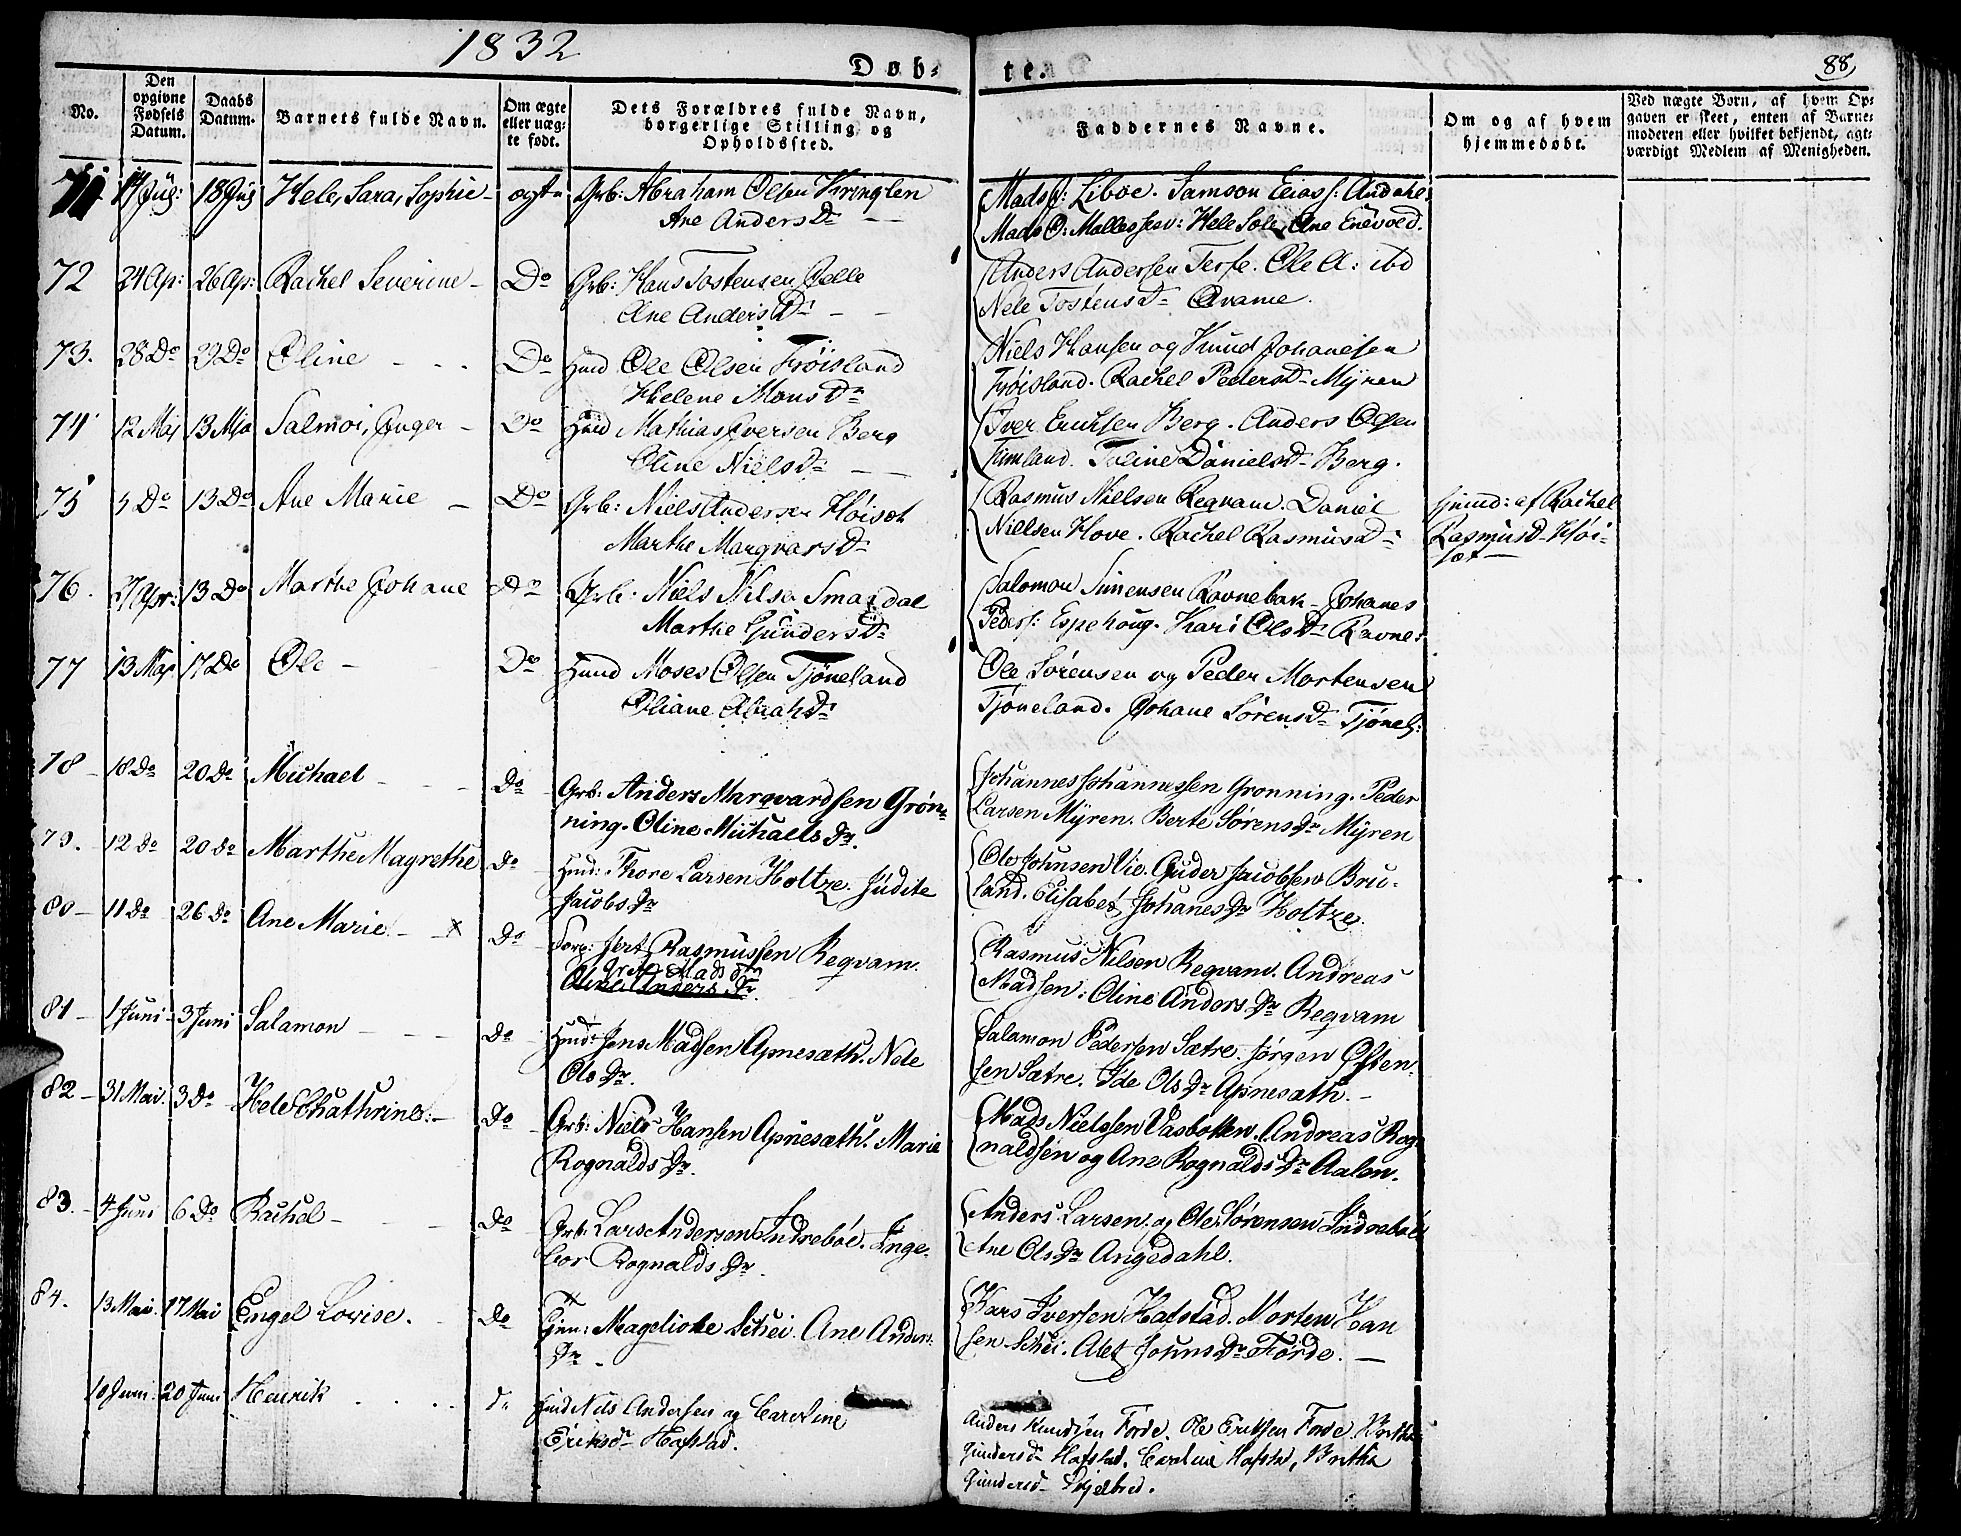 1832
Døb-
te.
88
No.
Den opgivne Fødsels Datum.
Daabs Datum.
Barnets fulde Navn.
Om ægte eller uægte født.
Dets Forældres fulde Navn, borgerlige Stilling og Opholdssted.
Faddernes Navne.
Om og af hvem hjemmedøbt.
Ved uægte Børn, af hvem Opgaven er skeet, enten af Barnemoderen eller hvilket bekjendt, agtværdigt Medlem af Menigheden.
71 18 Hele, Sara, Sophie - Grb: Abraham Olsen Kringlen
Ane Anders Dr
Mads J: Liboe. Samson
Mads O: Hele Ane
72 24 Ap: 26 Ap: Rachel Severine - Do Grb: Hans Tostensen
Ane Anders Dr
Anders Andersen Ole A: ibd
Nele Tostens Dr Qvame.
73. 28 Do 29 Do Oline - - - Do Huusd Ole Olsen Frøisland
Helene Mons Dr
Niels Hansen og Knud Johanesen
Frøisland. Rachel Peders Dr Myren
74 12 Maj 13 Maj Salmoi, Inger - Do Huusd Mathias Iversen Berg
Oline Niels Dr
Iver Erichsen Berg. Anders Olsen
Timland. Daniels Dr Berg.
75 5 Do 13 Do Ane Marie - Do Grb: Niels Andersen Høisæt
Marthe Marqvars Dr
Rasmus Nielsen Reqvam. Daniel
Nielsen Hove. Rachel Rasmus Dr
af Rachel
Rasmus D. Høi-
sæt
76. 27 Apr: 13 Do Marthe Johane Do Grb: Niels Nilsen Smaadal
Marthe Gunders Dr
Salomon Simensen Ravnebak - Johanes
Peders: Espehoug. Kari Ols Dr Ravne:
77 13 Maj 17 Do Ole - Do Huusd Moses Olsen Tjøneland
Oliane Dr
Ole Sørensen og Peder Mortensen
Tjøneland. Johane Sørens Dr
78 - 18 Do 20 Do Michael - - - Do Grb: Anders Marqvardsen Grøn-
ning. Oline Michaels Dr.
Johannes Johannessen Grønning. Peder
Larsen Myren. Berte Sørens Dr Myren
79. 12 Do 20 Do Marthe Magrethe Do Huusd: Thore Larsen Holtze. Judite
Jacobs Dr
Ole Johnsen Vie. Guder Jacobsen Bru-
land. Elisabet Johanes Dr Holtze.
80 - 11 Do 26 Do Ane Marie - x Do Rasmussen Reqvam.
Mads Dr
Oline Anders Dr
Rasmus Nilsen Reqvam. Andreas
Madsen. Oline Anders Dr Reqvam
81 - 1 Juni 3 Juni Salamon - - - Do Huusd: Jens Madsen Apnesæth. Nele
Ols Dr.
Salamon Pedersen Sætre. Jørgen Østen-
sen Sætre. Ide Ols Dr Apnesæth. -
82 - 31 Mai. 3 Do Hele Chathrine. - Do Grb: Niels Hansen Apnesæth. Marie
Rognalds Dr.
Mads Nielsen Vasbotten. Andreas Rog-
naldsen og Ane Rognalds Dr Aalen.
83. - 4 Juni 6 Do Rachel - - - Do Grb: Lars Andersen Indrebøe. Inge-
bor Rognalds Dr.
Anders Larsen og Ole Sørensen Indrebøe
Ane Ols Dr Angedahl.
84. 13 Mai 17 Mai Engel Lovise. Do Magelioke Schei. Ane Anders
Dr -
Lars Iversen Hafstad. Morten Han
sen Schei. Alet Johns Dr Førde. -
10 Juni 20 Juni Henrik . . . . Huusd Nils Andersen og Caroline
Eriksdr Hafstad.
Anders Knudsen Førde. Ole Eriksen Førde. Brithe
Gundersdr Hafstad. Caroline Hafstad, Brithe
Gundersdr